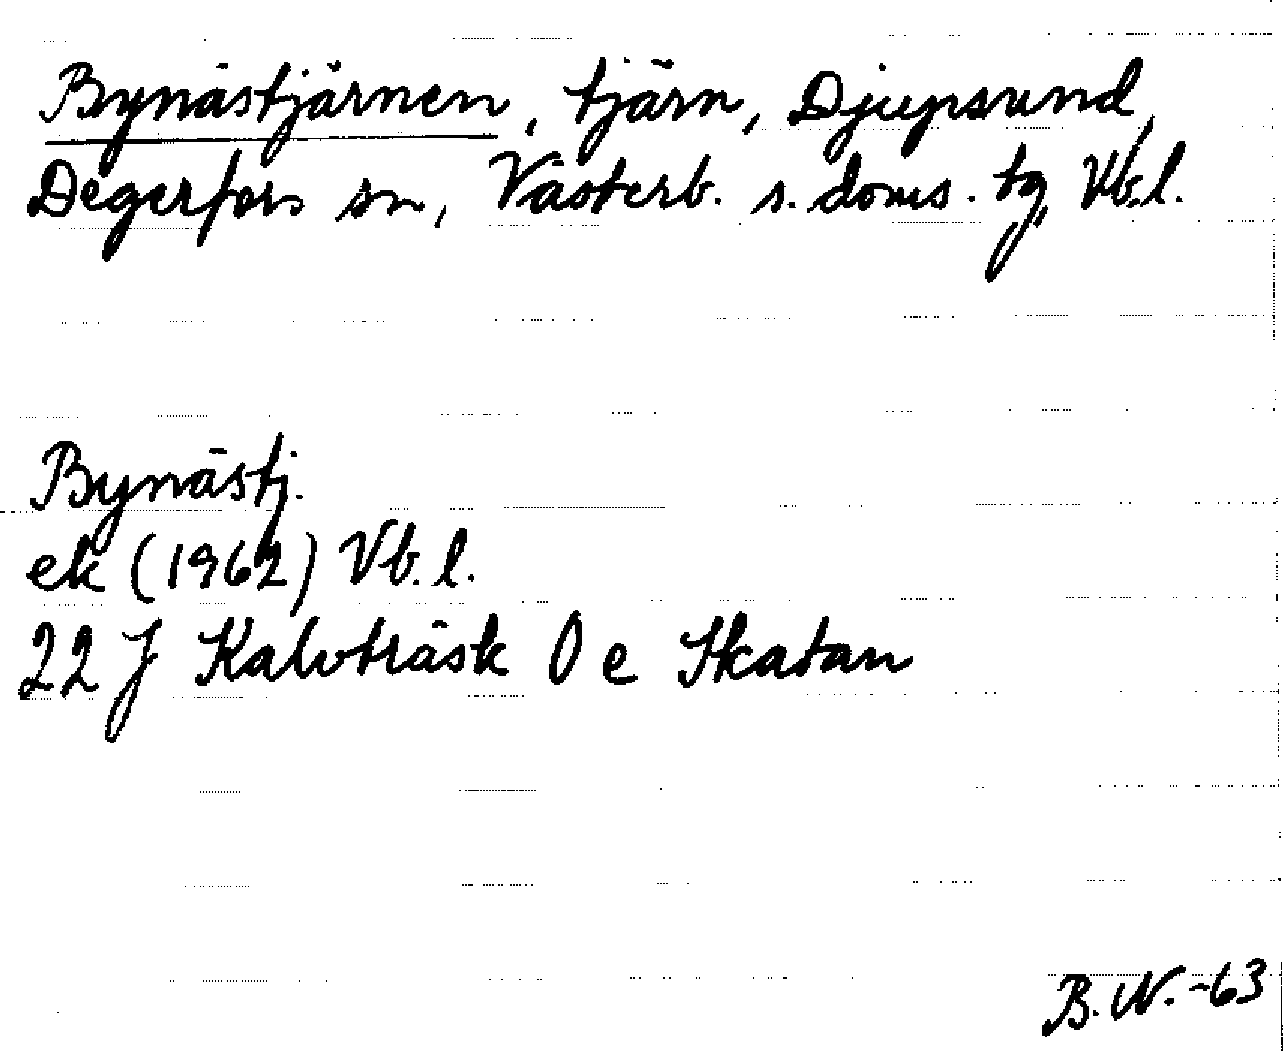 Bynästjärnen, tjärn, Djupsund,
Degerfors sn, Västerb. s. doms. tg, Vb.l.
Bynästj.
ek (1962) Vb. l.
22 J Kalvträsk 0 e Skatan
B. N. -63